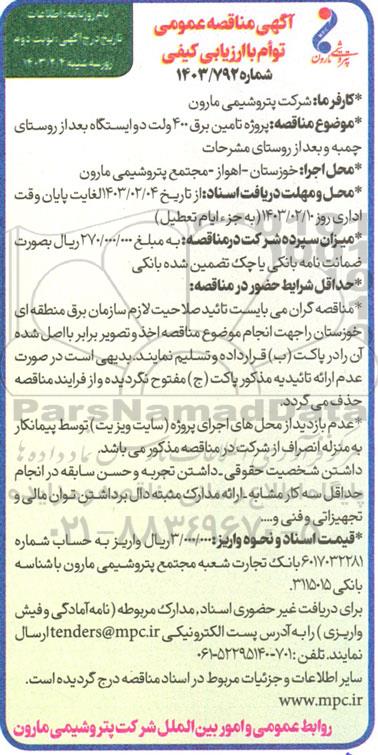 نام روزنامه: اطلاعات
تاریخ درج آگهی: نوبت دوم
روز سه شنبه ۱۴۰۳/۲/۴
آگهی مناقصه عمومی
توأم با ارزیابی کیفی
شماره ۱۴۰۳/۷۹۲
پتروشیمی مارون
*کارفرما: شرکت پتروشیمی مارون
*موضوع مناقصه: پروژه تامین برق ۴۰۰ ولت دو ایستگاه بعد از روستای
چمبه و بعد از روستای مشرحات
*محل اجرا: خوزستان -اهواز -مجتمع پتروشیمی مارون
*محل و مهلت دریافت اسناد: از تاریخ ۱۴۰۳/۰۲/۰۴ لغایت پایان وقت
اداری روز ۱۴۰۳/۰۲/۱۰ (به جزء ایام تعطیل)
*میزان سپرده شرکت در مناقصه: به مبلغ ۲۷۰/۰۰۰/۰۰۰ ریال بصورت
ضمانت نامه بانکی یا چک تضمین شده بانکی
*حداقل شرایط حضور در مناقصه:
*مناقصه گران می بایست تائید صلاحیت لازم سازمان برق منطقه ای
خوزستان را جهت انجام موضوع مناقصه اخذ و تصویر برابر با اصل شده
آن را در پاکت (ب) قرار داده و تسلیم نمایند. بدیهی است در صورت
عدم ارائه تائیدیه مذکور پاکت (ج) مفتوح نگردیده و از فرایند مناقصه
حذف می گردد.
*عدم بازدید از محل های اجرای پروژه (سایت ویزیت) توسط پیمانکار
به منزله انصراف از شرکت در مناقصه مذکور می باشد.
داشتن شخصیت حقوقی ـ داشتن تجربه و حسن سابقه در انجام
حداقل سه کار مشابه ـ ارائه مدارک مثبته دال برداشتن توان مالی و
تجهیزاتی و فنی و...
*قیمت اسناد و نحوه واریز: ۳/۰۰۰/۰۰۰ ریال واریز به حساب شماره
۶۰۱۷۰۳۲۲۸۱ بانک تجارت شعبه مجتمع پتروشیمی مارون با شناسه
بانکی ۳۱۱۵۰۱۵.
برای دریافت غیر حضوری اسناد، مدارک مربوطه (نامه آمادگی و فیش
واریزی) را به آدرس پست الکترونیکی tenders@mpc.ir ارسال
نمایند. تلفن: ۷۰۱-۵۲۲۹۵۱۴۰-۰۶۱
سایر اطلاعات و جزئیات مربوط در اسناد مناقصه درج گردیده است.
www.mpc.ir
روابط عمومی و امور بین الملل شرکت پتروشیمی مارون
ParsNamadData
۰۲۱-۸۸۳۴۹۶۷۰